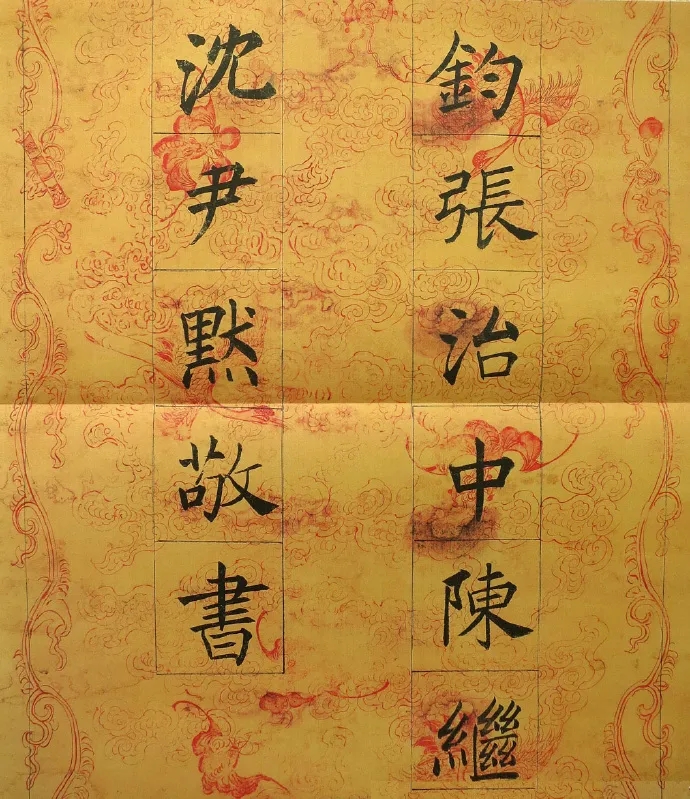 鈞張治中陳繼
沈尹默敬書